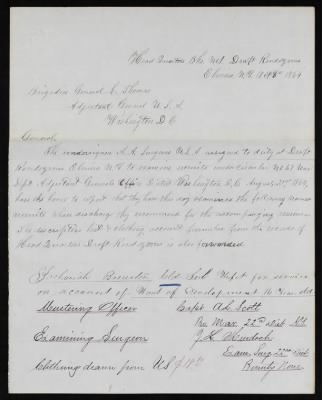 Head Quarters Draft Rendezvous
Elmira N.Y. 1864
Brigadier General L. Thomas
Adjutant General U.S.A
Washington D.C
General
The undersigned A.A. Surgeons U.S.A assigned to duty at Draft
Rendezvous Elmira N.Y. to examine recruits under Circular No 67 War
Dept Adjutant Generals Office Dated Washington D.C. August 1864
have the honor to report that they have this day examined the following named
recruits whose discharge they recommend for the reason
descriptive list & clothing account furnished from the records of
Head Quarters Draft Rendezvous is also forwarded
Brewster Cold Unfit for service
on account of Want of development 16 Years old
Mustering Officer Capt A. Scott
Pro Mar 22nd Dist N.Y.
Examining Surgeon
22nd Dist
Clothing drawn from U.S. Bounty None